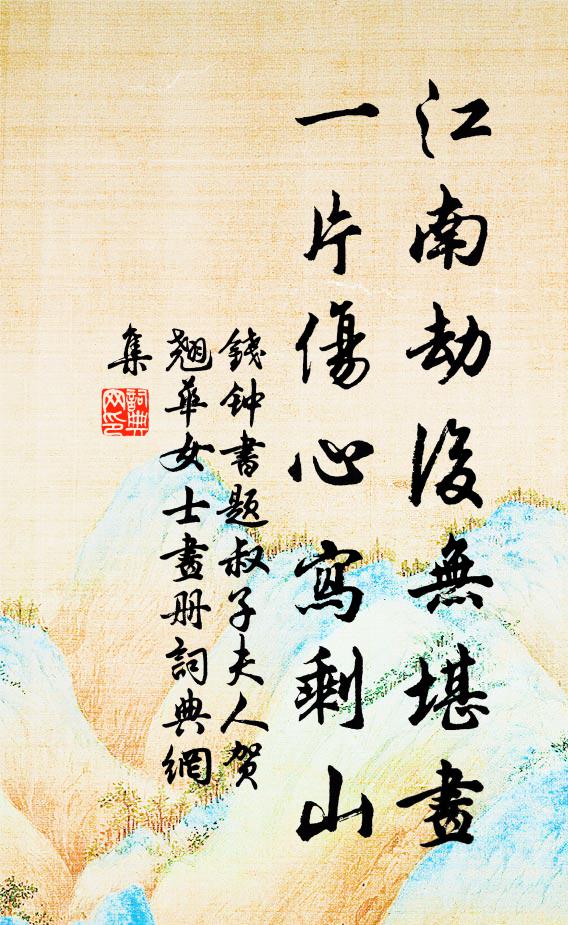 江南劫後無堪畫
一片傷心寫剩山
錢钟書題叔子夫人贺
翘華女士畫册詞典網
集
詞典
网印